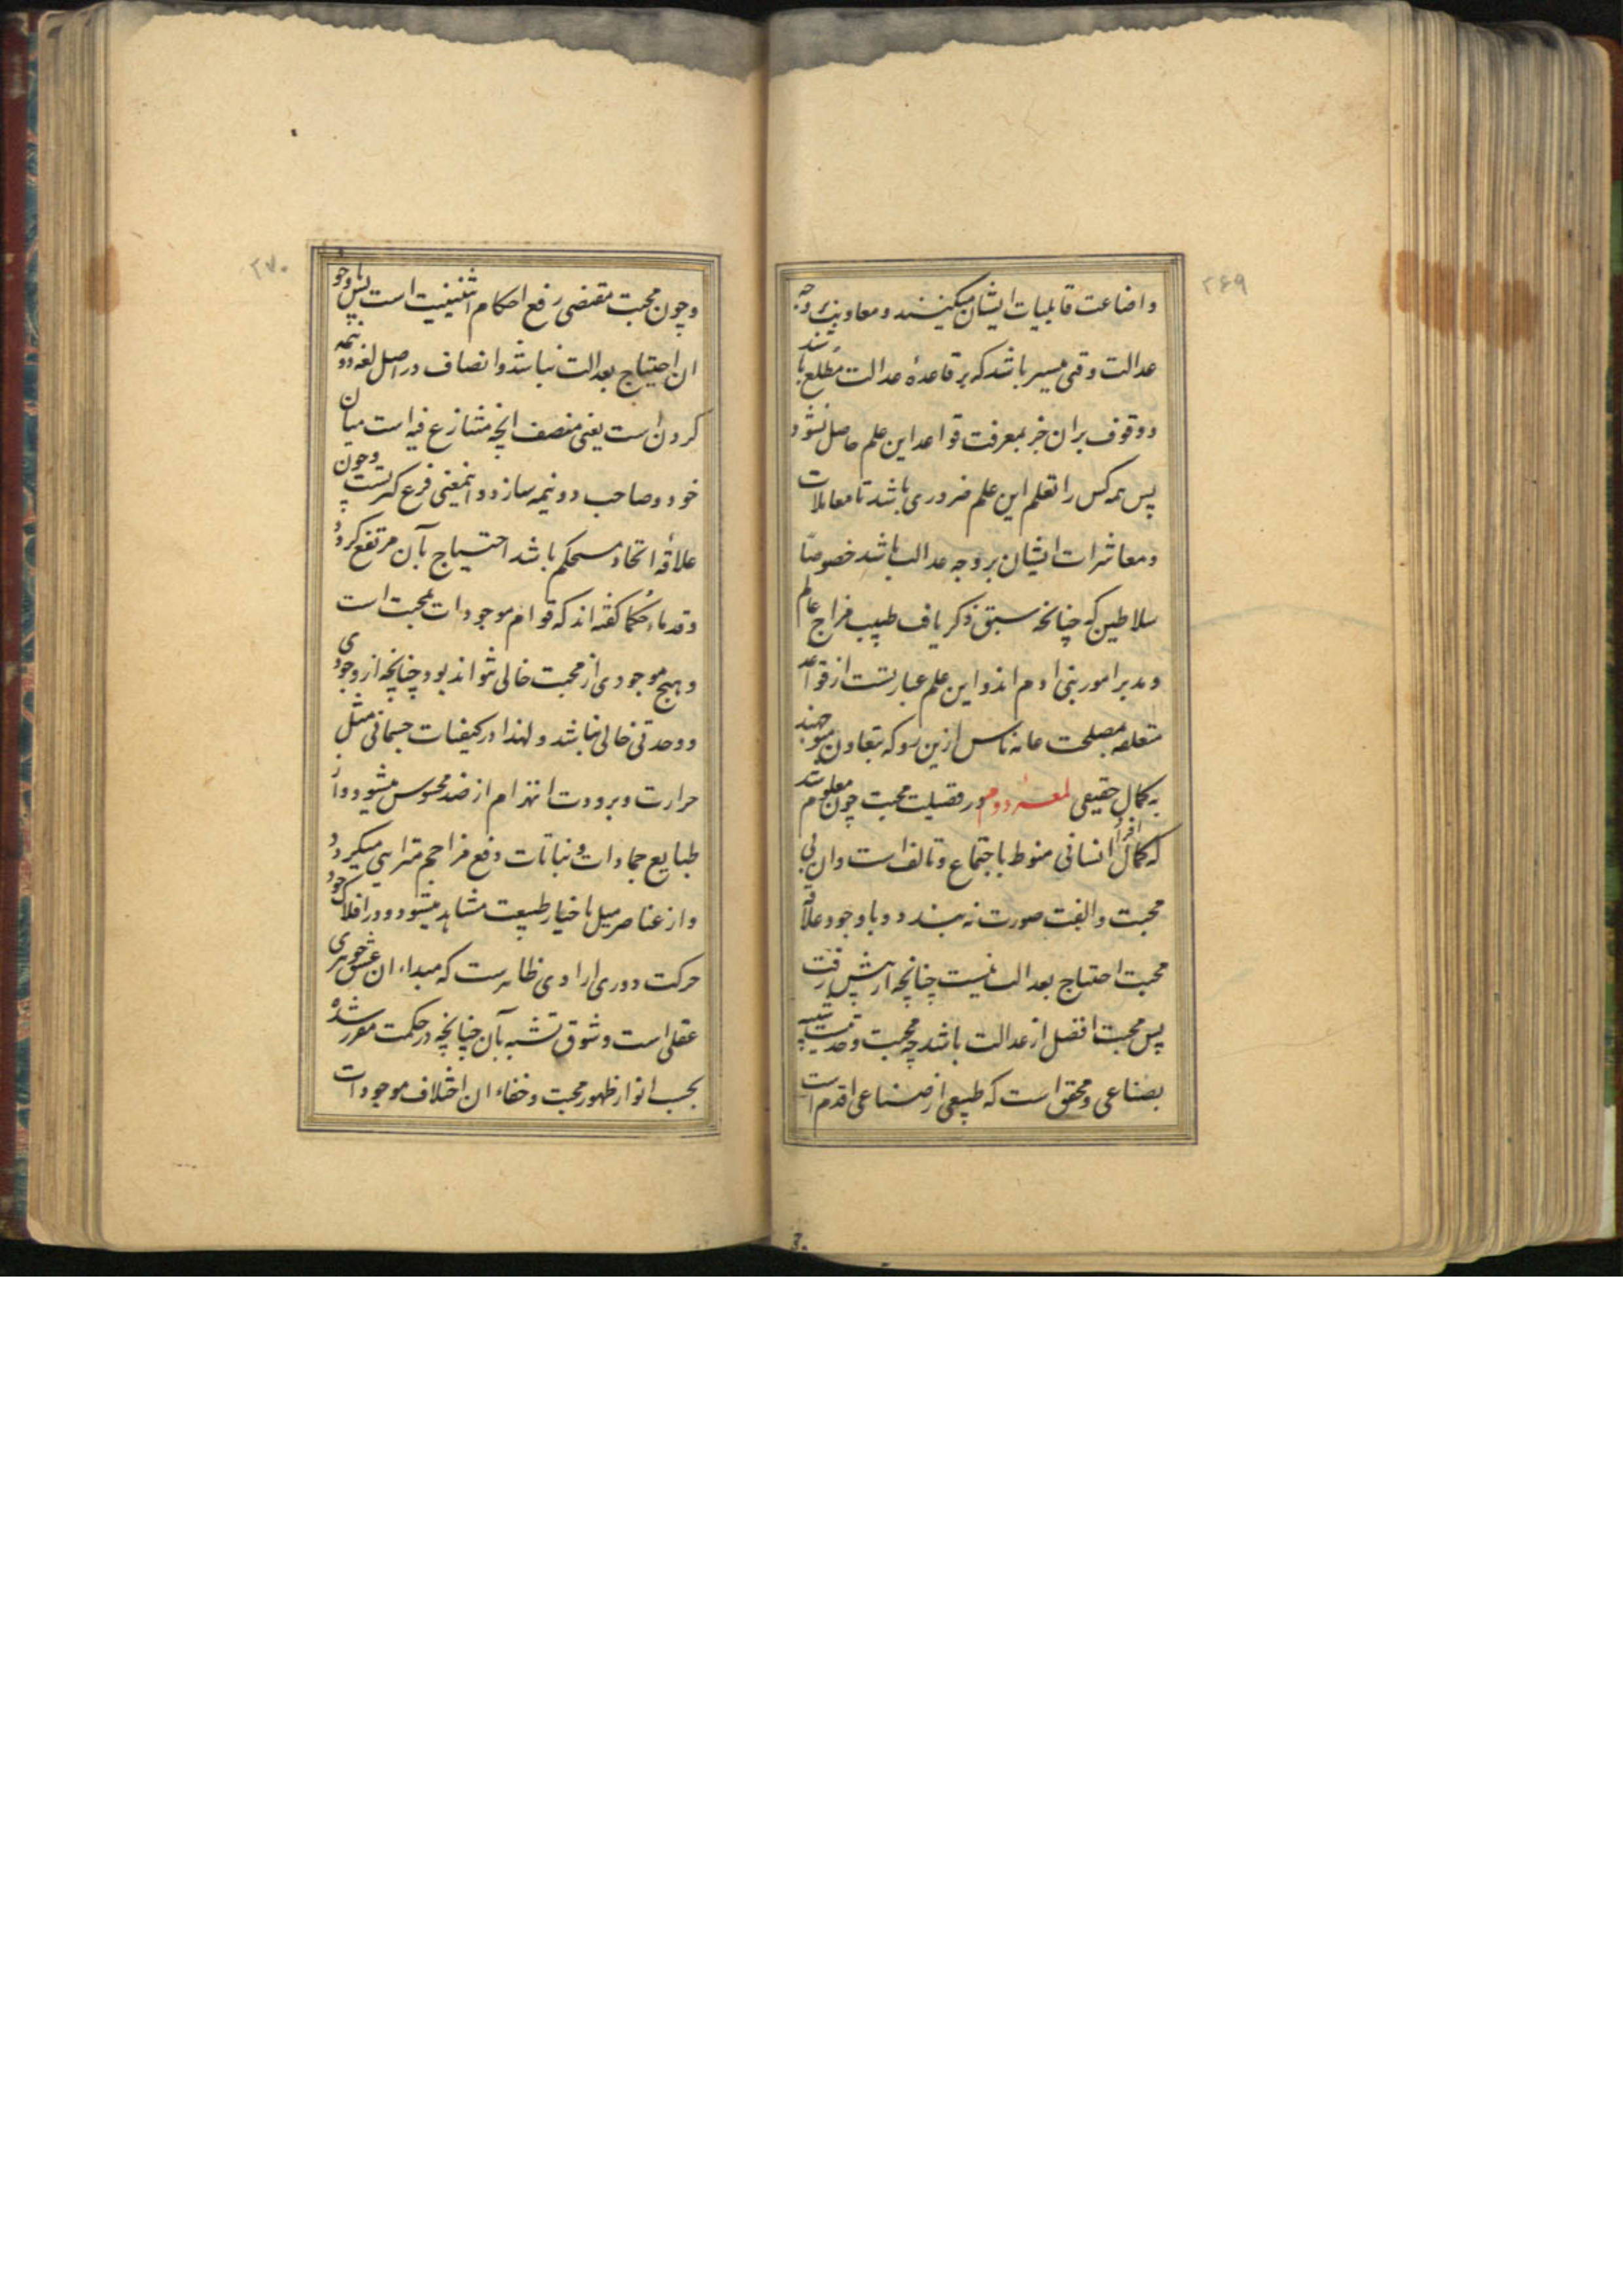 ۲۶۹
واضاعت قابلیات ایشان میکنند و معاونت بر وجه
عدالت وقتی میسر باشد که بر قاعدهٔ عدالت مطلع باشند
و وقوف بران جز بمعرفت قواعد این علم حاصل نشود
پس همه کس را تعلم این علم ضروری باشد تا معاملات
و معاشرات ایشان بر وجه عدالت باشد خصوصاً
سلاطین که چنانچه سبق ذکر یافت طبیب مزاج عالم
و مدبر امور بنی ادم اند و این علم عبارتست از قواعد
متعلقه بمصلحت عامه ناس ازین رو که بتعاون متوجهند
به کمال حقیقی لمعهٔ دوم در فضیلت محبت چون معلوم شد
که کمال افراد انسانی منوط باجتماع و تالف است وان بی
محبت و الفت صورت نه بندد و با وجود علاقه
محبت احتیاج بعدالت نیست چنانچه از پیش رفت
پس محبت افضل از عدالت باشد چه محبت وحدتیست
بصناعی و محقق است که طبیعی از صناعی اقدم است
۲۷۰
و چون محبت مقتضی رفع احکام اثنینیت است پس با وجود
ان احتیاج بعدالت نباشد و انصاف در اصل لغه دو نیمه
کردن است یعنی منصف انچه متنازع فیه است میان
خود و صاحب دو نیمه سازد و اینمعنی فرع کثرتست و چون
علاقه اتحاد مستحکم باشد احتیاج بآن مرتفع گردد
و قدماء حکما گفته اند که قوام موجودات بمحبت است
و هیچ موجودی از محبت خالی نتواند بود چنانچه از وجودی
و وحدتی خالی نباشد و لهذا در کیفیات جسمانی مثل
حرارت و برودت انهزام از ضد محسوس میشود و از
طبایع جمادات و نباتات دفع مزاحم مترایی میگردد
و از عناصر میل باحیاز طبیعت مشاهد میشود و در افلاک خود
حرکت دوری ارادی ظاهرست که مبداء ان عشق جوهری
عقلی است و شوق تشبه بآن چنانچه در حکمت مقرر شده
بحسب انوار ظهور محبت و خفاء ان اختلاف موجودات